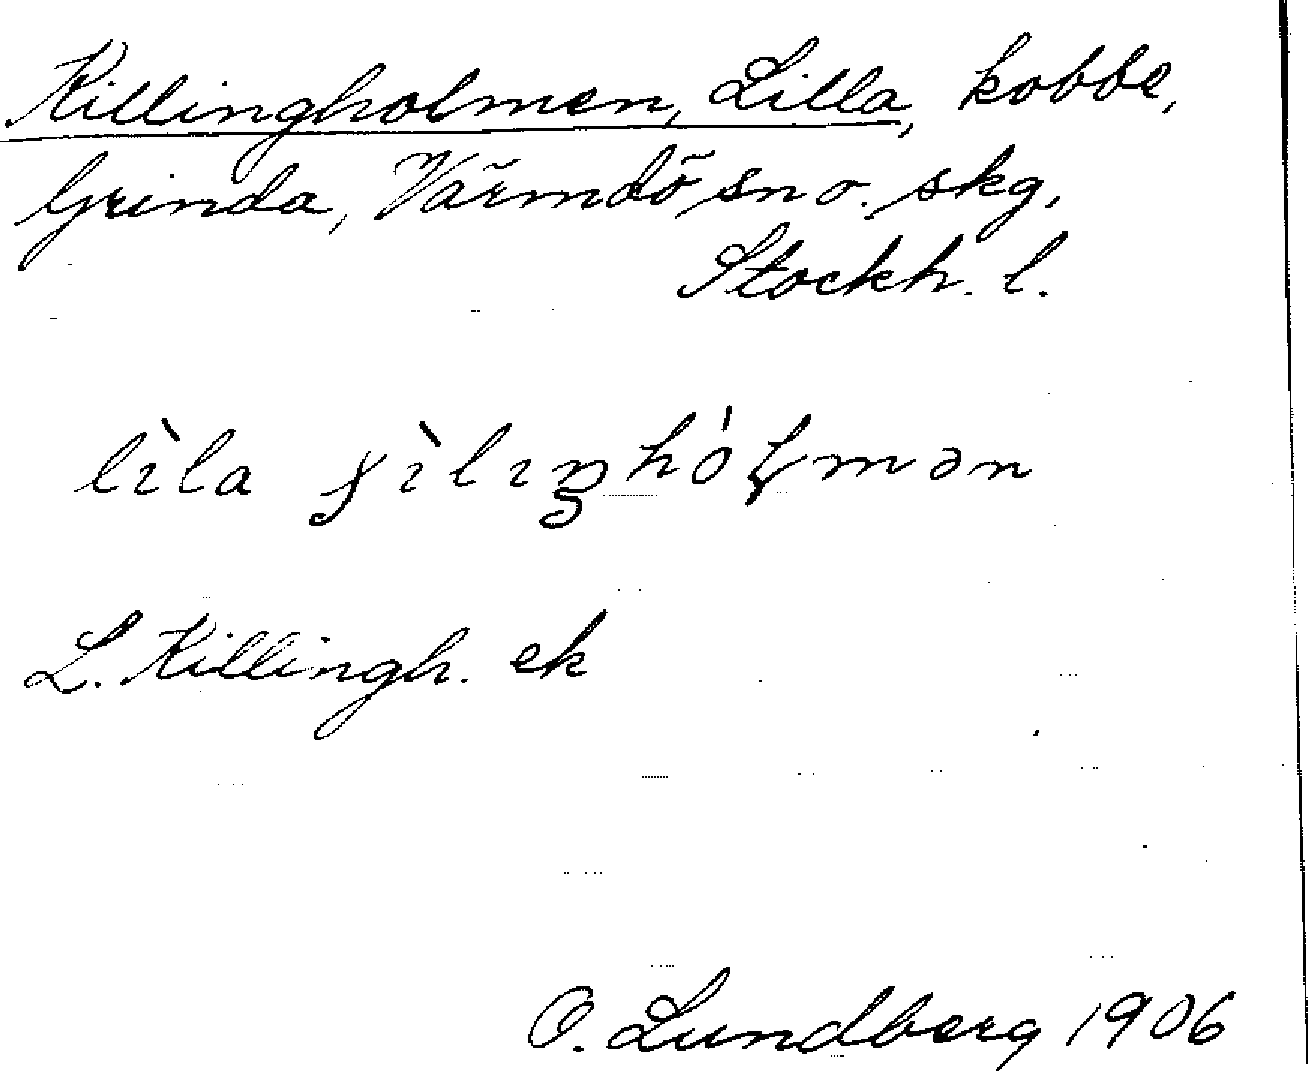 Killingholmen, Lilla, kobbe,
Grinda, Värmdö sn o. skg,
Stockh. l.
lìla ʃìlıŋhólmən
L. Killingh. ek
O. Lundberg 1906